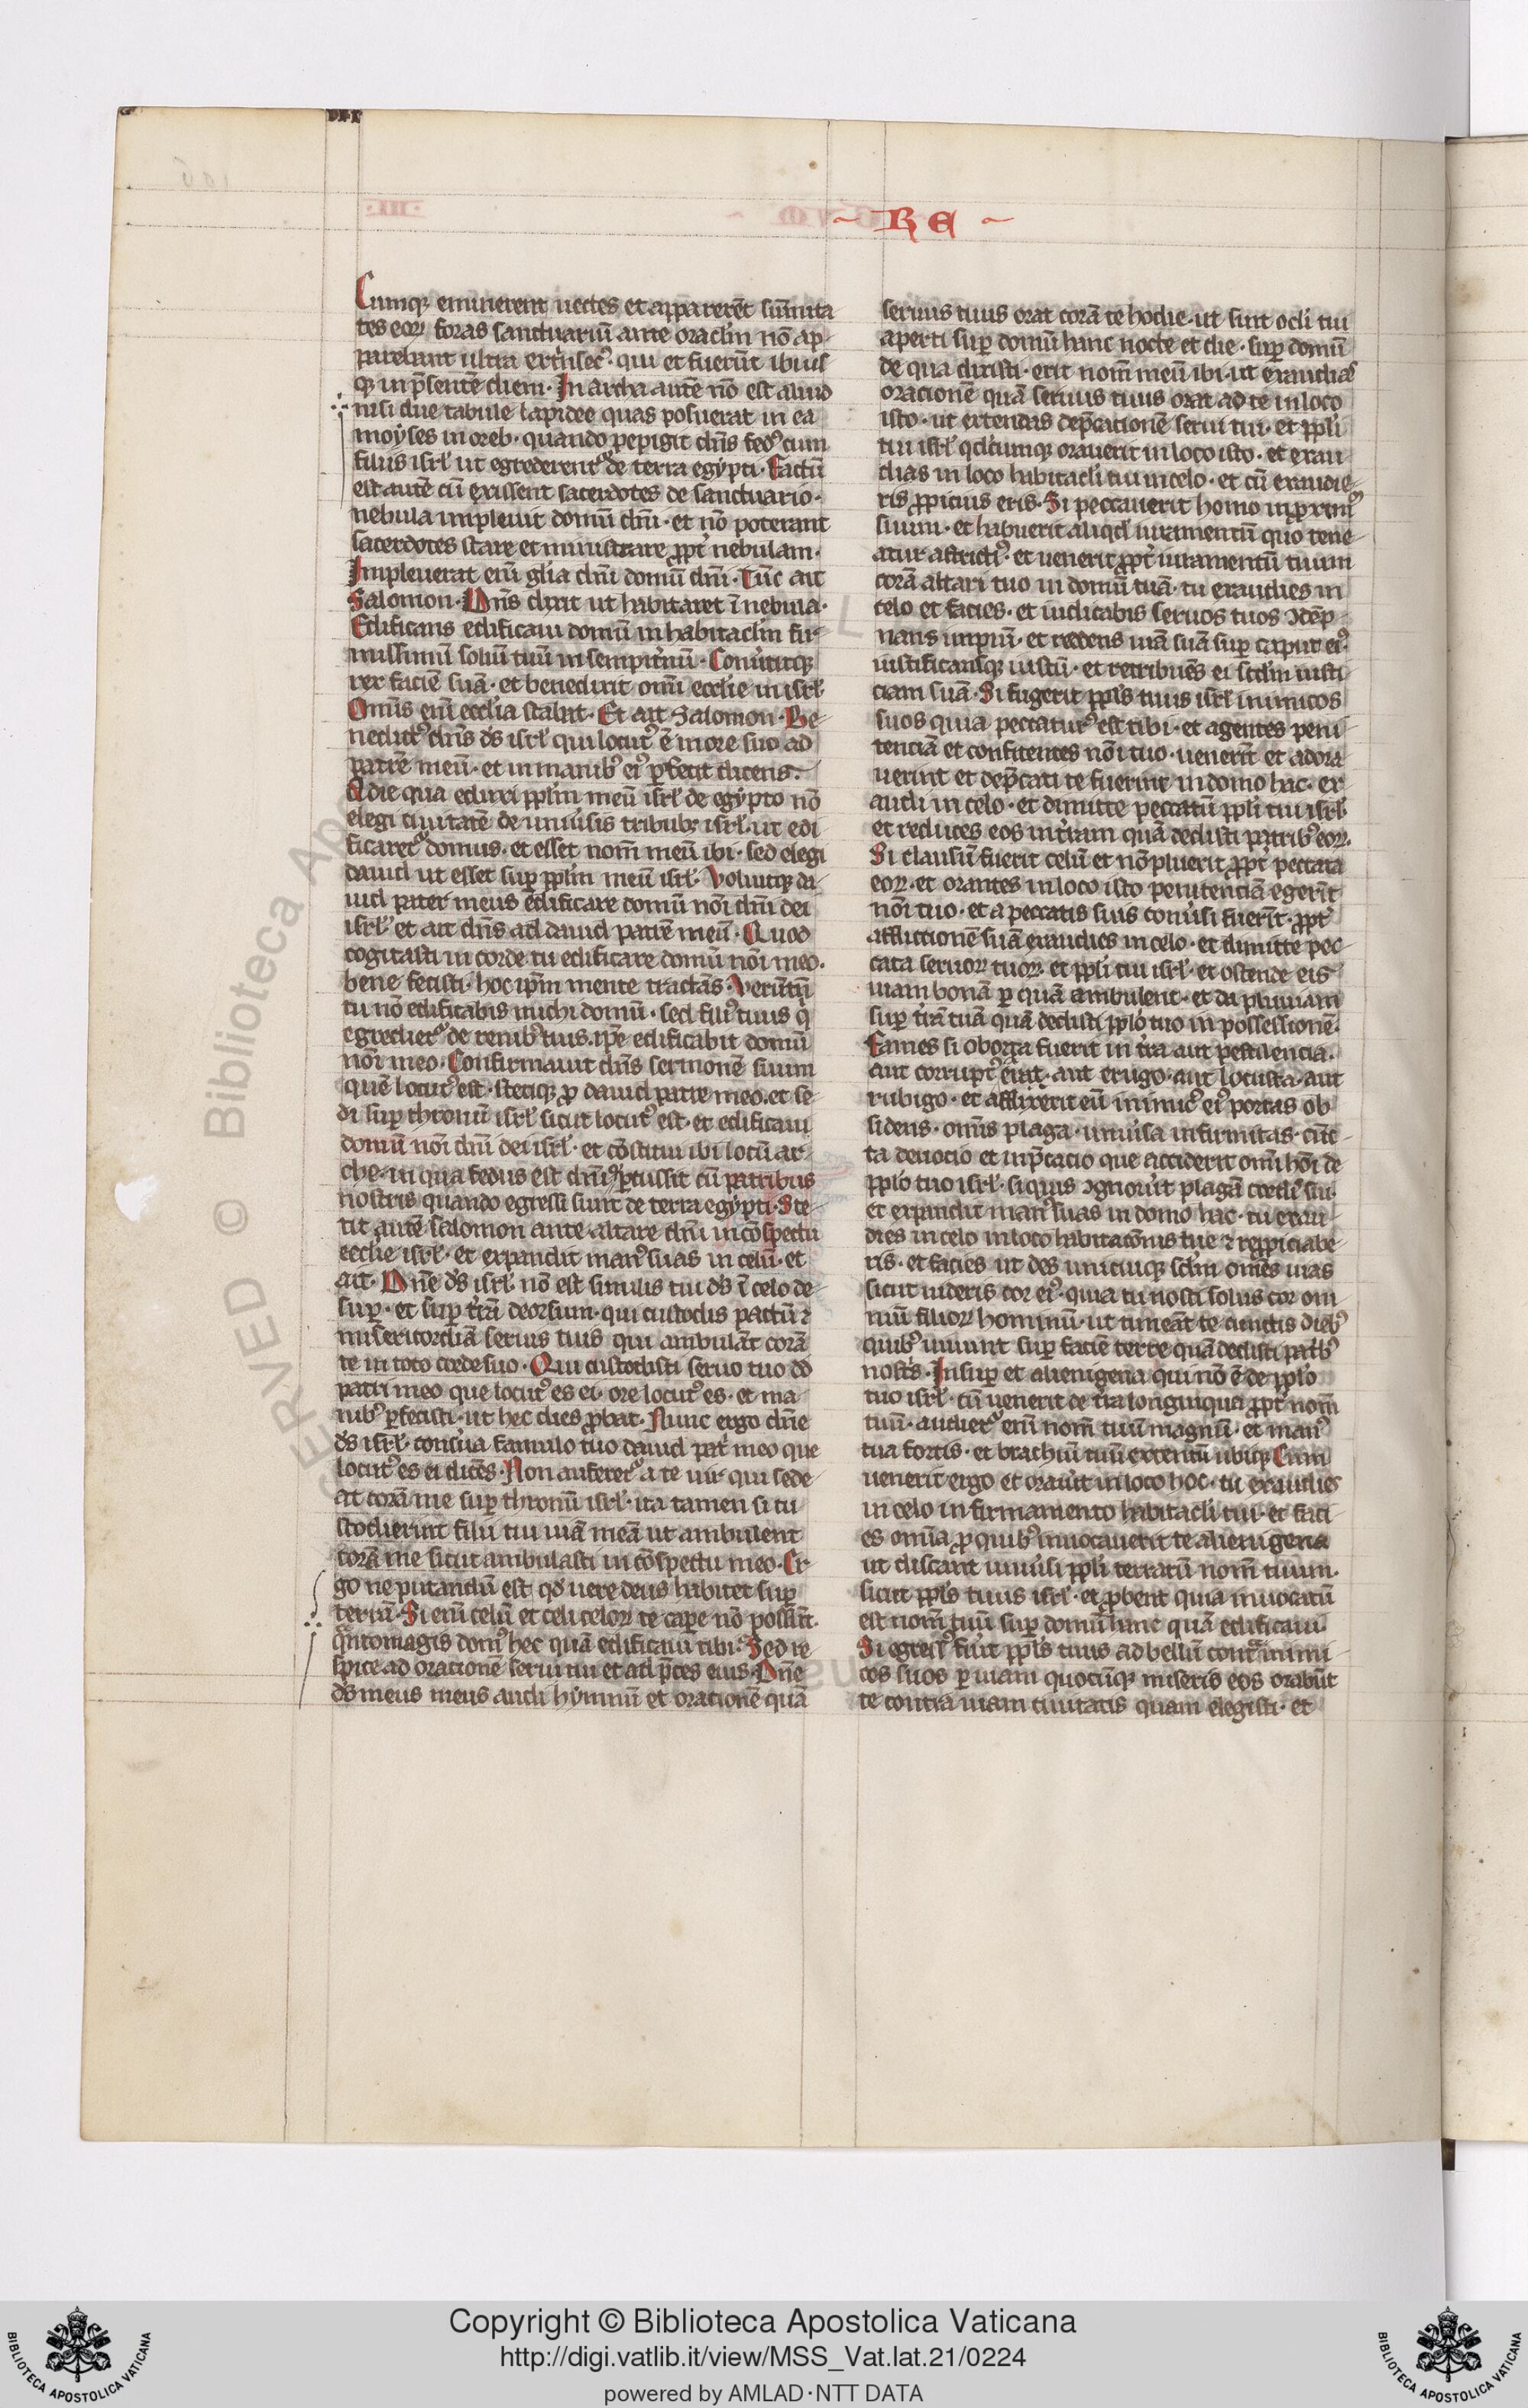 ~ R E ~
Cumq; eminerent uectes et apparerēt sūmita
tes eoꝝ foras sanctuariū ante oraclm̄ nō ap
parebant ultra ext̾nsec᷒· qui et fuerūt ibi us
q; in p̄sentē diem· In archa autē nō est aliud
nisi due tabule lapidee quas posuerat in ea
moyses in oreb· quando pepigit dn̄s fed᷒ cum
filiis isrl̾ ut egrederent᷒ de terra egypti· Factū
est autē cū exissent sacerdotes de sanctuario·
nebula impleuit domū dn̄i· et nō poterant
sacerdotes stare et ministrare ꝓpt̾ nebulam·
Impleuerat enī gl̄ia dn̄i domū dn̄i· Tūc ait
Salomon· Dn̄s dixit ut habitaret ī nebula·
Edificans edificaui domū in habitaclm̄ fir
missimū soliū tuū in sempit̾nū· Conu̾titq;
rex faciē suā· et benedixit omī ecclīe in isrl̾
Omīs enī ecclīa stabat· Et ait Salomon· Be
nedict᷒ dn̄s ds̄ isrl̾ qui locut᷒ ē in ore suo ad
patrē meū· et in manib᷒ ei᷒ ꝑfecit dicens·
A die qua eduxi ppl̄m meū isrl̾ de egypto nō
elegi ciuitatē de uniu̾sis tribub; isrl̾· ut edi
ficaret᷒ domus· et esset nom̄ meū ibi· sed elegi
dauid ut esset suꝑ ppl̄m meū isrl̾· Voluitq; da
uid pater meus edificare domū nōi dn̄i dei
isrl̾· et ait dn̄s ad dauid patrē meū· Quod
cogitasti in corde tu edificare domū nōi meo·
bene fecisti· hoc ip̄m mente tractās· Verūtn̄
tu nō edificabis michi domū· sed fili᷒ tuus q̇
egrediet᷒ de renib᷒ tuis· ip̄e edificabit domū
nōi meo· Confirmauit dn̄s sermonē suum
quē locut᷒ est· stetiq; ꝓ dauid patre meo· et se
di suꝑ thronū isrl̾ sicut locut᷒ est· et edificaui
domū nōi dn̄i dei isrl̾· et cōstitui ibi locū ar
che· in qua fedus est dn̄i qd̾ ꝑcussit cū patribus
nostris quando egressi sunt de terra egypti· Ste
tit autē salomon ante altare dn̄i in cōspectu
ecclīe isrl̾· et expandit man᷒ suas in celū· et
ait· Dn̄e ds̄ isrl̾· nō est similis tui ds̄ ī celo de
suꝑ· et suꝑ t̾rā deorsum· qui custodis pactū ⁊
misericordiā seruis tuis qui ambulāt corā
te in toto corde suo· Qui custodisti seruo tuo dd̄
patri meo que locut᷒ es ei· ore locut᷒ es· et ma
nib᷒ ꝑfecisti· ut hec dies ꝓbat· Nunc ergo dn̄e
ds̄ isrl̾· conserua famulo tuo dauid pat̾ meo que
locut᷒ es ei dicēs· Non auferet᷒ a te uir qui sede
at corā me suꝑ thronū isrl̾· ita tamen si cu
stodierint filii tui uiā meā ut ambulent
corā me sicut ambulasti in cōspectu meo· Er
go ne putandū est qd̾ uere deus habitet suꝑ
terrā· Si enī celū et celi celoꝝ te caꝑe nō possūt·
q̄ntomagis dom᷒ hec quā edificaui tibi· Sed re
spice ad orationē serui tui et ad p̄ces eius· Dn̄e
ds̄ meus meus audi hymnū et orationē quā
seruus tuus orat corā te hodie· ut sint ocl̄i tui
aperti suꝑ domū hanc nocte et die· suꝑ domū
de qua dixisti· erit nom̄ meū ibi· ut exaudias
orationē quā seruus tuus orat ad te in loco
isto· ut extendas dep̄cationē serui tui· et ppl̄i
tui isrl̾ qd̾cumq; orauerit in loco isto· et exau
dias in loco habitacl̄i tui in celo· et cū exaudie
ris ꝓpicius eris· Si peccauerit homo in ꝓximū
suum· et habuerit aliqd̾ iuramentū quo tene
atur astrict᷒· et uenerit ꝓpt̾ iuramentū tuum
corā altari tuo in domū tuā· tu exaudies in
celo et facies· et iudicabis seruos tuos ↄdēp
nans impiū· et reddens uiā suā suꝑ caput ei᷒·
iustificansq; iustū· et retribuēs ei scd̄m iusti
ciam suā· Si fugerit ppl̄s tuus isrl̾ inimicos
suos quia peccatur᷒ est tibi· et agentes peni
tenciā et confitentes nōi tuo· uenerīt et adora
uerint et dep̄cati te fuerint in domo hac· ex
audi in celo· et dimitte peccatū ppl̄i tui isrl̾·
et reduces eos in t̾ram quā dedisti patrib᷒ eoꝝ·
Si clausū fuerit celū et nō pluerit ꝓpt̾ peccata
eoꝝ· et orantes in loco isto penitenciā egerīt
nōi tuo· et a peccatis suis conu̾si fuerīt· ꝓpt̾
afflictionē suā exaudies in celo· et dimitte pec
cata seruoꝝ tuoꝝ· et ppl̄i tui isrl̾· et ostende eis
uiam bonā ꝑ quā ambulent· et da pluuiam
suꝑ t̾rā tuā quā dedisti ppl̄o tuo in possessionē·
Fames si oborta fuerit in t̾ra aut pestilencia·
aut corrupt᷒ erat· aut erugo· aut locusta· aut
rubigo· et afflixerit eū inimic᷒ ei᷒ portas ob
sidens· omīs plaga· uniu̾sa infirmitas· cūc
ta deuocio et inp̄cacio que acciderit omī hōi de
ppl̄o tuo isrl̾· siquis ↄgnou̾it plagā cordis sui·
et expandit man᷒ suas in domo hac· tu exau
dies in celo in loco habitatōnis tue ⁊ repropiciabe
ris· et facies ut des unicuiq; scd̄m omēs uias
sicut uideris cor ei᷒· quia tu nosti solus cor om
niū filioꝝ hominū· ut timeāt te cunctis dieb᷒
quib᷒ uiuunt suꝑ faciē terre quā dedisti pat̾b᷒
nost̾s· Insuꝑ et alienigena qui nō ē de ppl̄o
tuo isrl̾· cū uenerit de t̾ra longinqua ꝓpt̾ nom̄
tuū· audiet᷒ enī nom̄ tuū magnū· et man᷒
tua fortis· et brachiū tuū extentū ubiq; Cum
uenerit ergo et orau̾it in loco hoc· tu exaudies
in celo in firmamento habitacl̄i tui· et faci
es omīa ꝓ quib᷒ inuocauerit te alienigena
ut discant uniu̾si ppl̄i terrarū nom̄ tuum·
sicut ppl̄s tuus isrl̾· et ꝓbent quia inuocatū
est nom̄ tuū suꝑ domū hanc quā edificaui·
Si egress᷒ fu̾it ppl̄s tuus ad bellū contra inimi
cos suos ꝑ uiam quocūq; miseris eos orabūt
te contra uiam ciuitatis quam elegisti· et
RVED © Biblioteca Ap
Copyright © Biblioteca Apostolica Vaticana
http://digi.vatlib.it/view/MSS_Vat.lat.21/0224
powered by AMLAD·NTT DATA
BIBLIOTECA APOSTOLICA VATICANA
BIBLIOTECA APOSTOLICA VATICANA